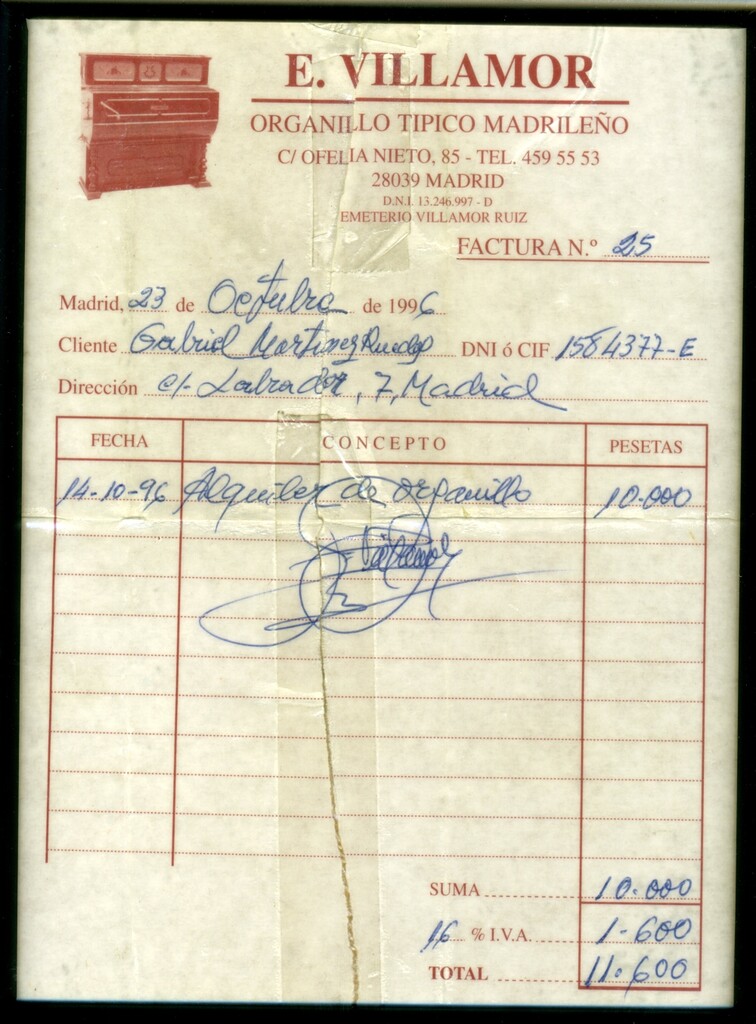 E. VILLAMOR
ORGANILLO TIPICO MADRILEÑO
C/ OFELIA NIETO, 85 - TEL. 459 55 53
28039 MADRID
D.N.I. 13.246.997 - D
EMETERIO VILLAMOR RUIZ
FACTURA N.º 25
Madrid, 23 de Octubre de 1996
Cliente Gabriel Martinez DNI ó CIF 1584377-E
Dirección c/. Labrador, 7, Madrid
FECHA CONCEPTO PESETAS
14-10-96 Alquiler de organillo 10.000
Villamor
SUMA 10.000
16 % I.V.A. 1.600
TOTAL 11.600